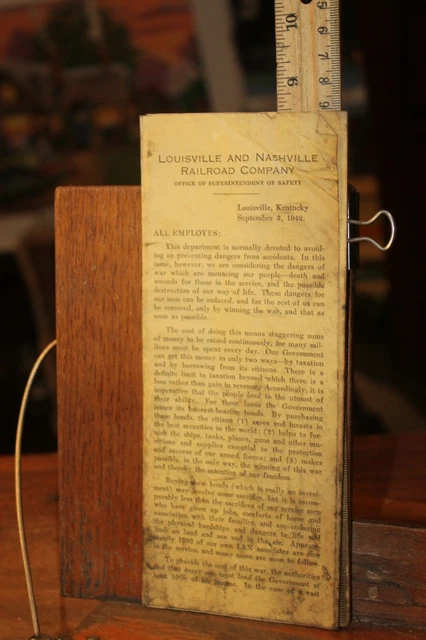 10
9
5
6
7
8
9
LOUISVILLE AND NASHVILLE
RAILROAD COMPANY
OFFICE OF SUPERINTENDENT OF SAFETY
Louisville, Kentucky
September 3, 1942.
ALL EMPLOYES:
This department is normally devoted to avoid-
ing or preventing dangers from accidents. In this
issue, however, we are considering the dangers of
war which are menacing our people—death and
wounds for those in the service, and the possible
destruction of our way of life. These dangers for
our men can be reduced, and for the rest of us can
be removed, only by winning the war, and that as
soon as possible.
The cost of doing this means staggering sums
of money to be raised continuously, for many mil-
lions must be spent every day. Our Government
can get this money in only two ways—by taxation
and by borrowing from its citizens. There is a
definite limit to taxation beyond which there is a
loss rather than gain in revenue. Accordingly, it is
imperative that the people lend to the utmost of
their ability. For these loans the Government
issues its interest-bearing bonds. By purchasing
these bonds, the citizen (1) saves and invests in
the best securities in the world; (2) helps to fur-
nish the ships, tanks, planes, guns and other mu-
nitions and supplies essential to the protection
and success of our armed forces; and (3) makes
possible, in the only way, the winning of this war
and thereby the retention of our freedom.
Buying these bonds (which is really an invest-
ment) may involve some sacrifice, but it is incom-
parably less than the sacrifices of our service men
who have given up jobs, comforts of home and
association with their families, and are enduring
the physical hardships and dangers to life and
limb on land and sea and in the air.
of our own L&N associates are now
in the service, and many more are soon to follow.
To finish the cost of this war, the authorities
that every one must lend the Government at
least 10% of his income. In the case of a vast